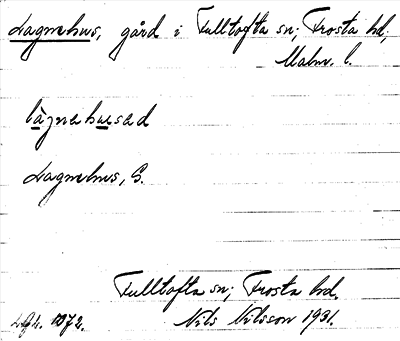 Lagmehus, gård i Fulltofta sn; Frosta hd;
Malm. l.
làgnehuesed
Lagmehus, G.
Fulltofta sn; Frosta hd.
Nils Nilsson 1931.